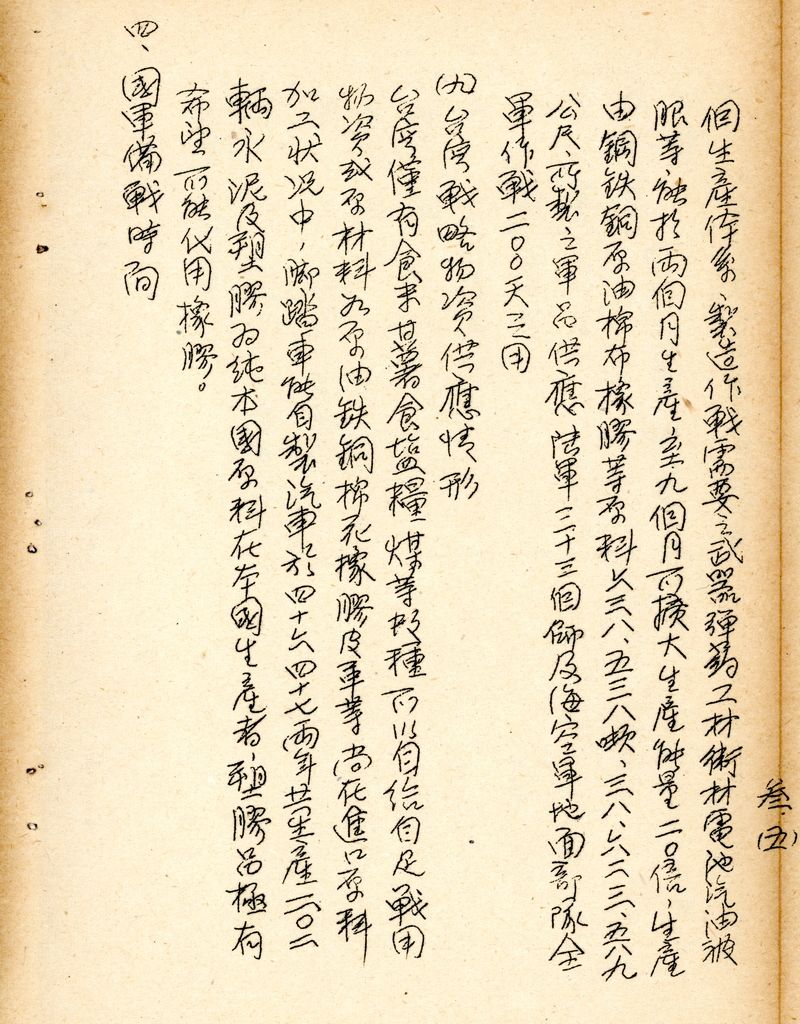 叁、(五)
個生產体系、製造作戰需要之武器彈葯工材衛材電池汽油被
服等、能於兩個月生產至九個月可擴大生產能量二〇倍、生產
由鋼鉄銅原油棉布橡膠等原料六三八、五三八噸、三八、六二三、五八九
公尺、所製之軍品供應陸軍二十三個師及海空軍地面部隊全
軍作戰二〇〇天之用
(九)台湾戰略物資供應情形
台湾僅有食米甘薯食塩糧煤等數種可以自給自足戰用
物資或原材料如原油鉄銅棉花橡膠皮革等尚在進口原料
加工狀況中、脚踏車能自製汽車於四十六四十七兩年共生產二〇二
輛水泥及塑膠為純本國原料在本國生產者、塑膠品極有
希望可能代用橡膠。
四、國軍備戰時间